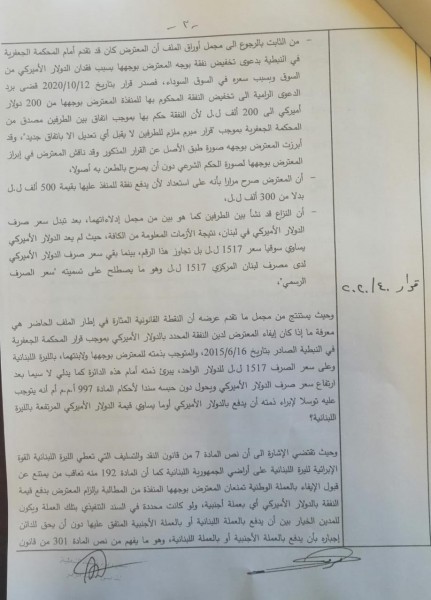 - ٣ -
- من الثابت بالرجوع الى مجمل أوراق الملف أن المعترض كان قد تقدم أمام المحكمة الجعفرية
في النبطية بدعوى تخفيض نفقة بوجه المعترض بوجهها بسبب فقدان الدولار الأميركي من
السوق وبسبب سعره في السوق السوداء، فصدر قرار بتاريخ 2020/10/12 قضى برد
الدعوى الرامية الى تخفيض النفقة المحكوم بها للمنفذة المعترض بوجهها من 200 دولار
أميركي الى 200 ألف ل.ل لأن النفقة حكم بها بموجب اتفاق بين الطرفين مصدق من
المحكمة الجعفرية بموجب "قرار مبرم ملزم للطرفين لا يقبل أي تعديل الا باتفاق جديد"، وقد
أبرزت المعترض بوجهه صورة طبق الأصل عن القرار المذكور وقد ناقش المعترض في إبراز
المعترض بوجهها لصورة الحكم الشرعي دون أن يصرح بالطعن به أصولا،
- أن المعترض صرح مرارا بأنه على استعداد لأن يدفع نفقة للمنفذ عليها بقيمة 500 ألف ل.ل
بدلا من 300 ألف ل.ل،
- أن النزاع قد نشأ بين الطرفين كما هو بين من مجمل إدلاءاتهما، بعد تبدل سعر صرف
الدولار الأميركي في لبنان، نتيجة الأزمات المعلومة من الكافة، حيث لم يعد الدولار الأميركي
يساوي سوقيا سعر 1517 ل.ل بل تجاوز هذا الرقم، بينما بقي سعر صرف الدولار الأميركي
لدى مصرف لبنان المركزي 1517 ل.ل وهو ما يصطلح على تسميته "سعر الصرف
الرسمي"،
قرار ٢٠٢٠/٤٠
وحيث يستنتج من مجمل ما تقدم عرضه أن النقطة القانونية المثارة في إطار الملف الحاضر هي
معرفة ما إذا كان إيفاء المعترض لدين النفقة المحدد بالدولار الأميركي بموجب قرار المحكمة الجعفرية
في النبطية الصادر بتاريخ 2015/6/16 والمتوجب بذمته للمعترض بوجهها ولابنتهما، بالليرة اللبنانية
وعلى سعر الصرف 1517 ل.ل للدولار الواحد، يبرئ ذمته أمام هذه الدائرة كما يدلي لا سيما بعد
ارتفاع سعر صرف الدولار الأميركي ويحول دون حبسه سندا لأحكام المادة 997 أ.م.م أم أنه يتوجب
عليه توسلا لإبراء ذمته أن يدفع بالدولار الأميركي أوما يساوي قيمة الدولار الأميركي المرتفعة بالليرة
اللبنانية؟
وحيث تقتضي الإشارة الى أن نص المادة 7 من قانون النقد والتسليف التي تعطي الليرة اللبنانية القوة
الإبرائية لليرة اللبنانية على أراضي الجمهورية اللبنانية كما أن المادة 192 منه تعاقب من يمتنع عن
قبول الإيفاء بالعملة الوطنية تمنعان المعترض بوجهها المنفذة من المطالبة بإلزام المعترض بدفع قيمة
النفقة بالدولار الأميركي أي بعملة أجنبية، ولو كانت محددة في السند التنفيذي بتلك العملة ويكون
للمدين الخيار بين أن يدفع بالعملة اللبنانية أو بالعملة الأجنبية المتفق عليها دون أن يحق للدائن
إجباره بأن يدفع بالعملة الأجنبية أو بالعملة اللبنانية، وهو ما يفهم من نص المادة 301 من قانون